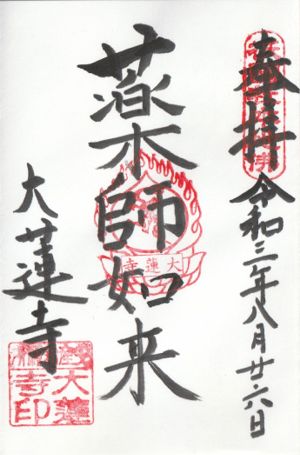 奉拝
令和三年八月廿六日
薬師如来
大蓮寺
大蓮寺
大蓮寺印